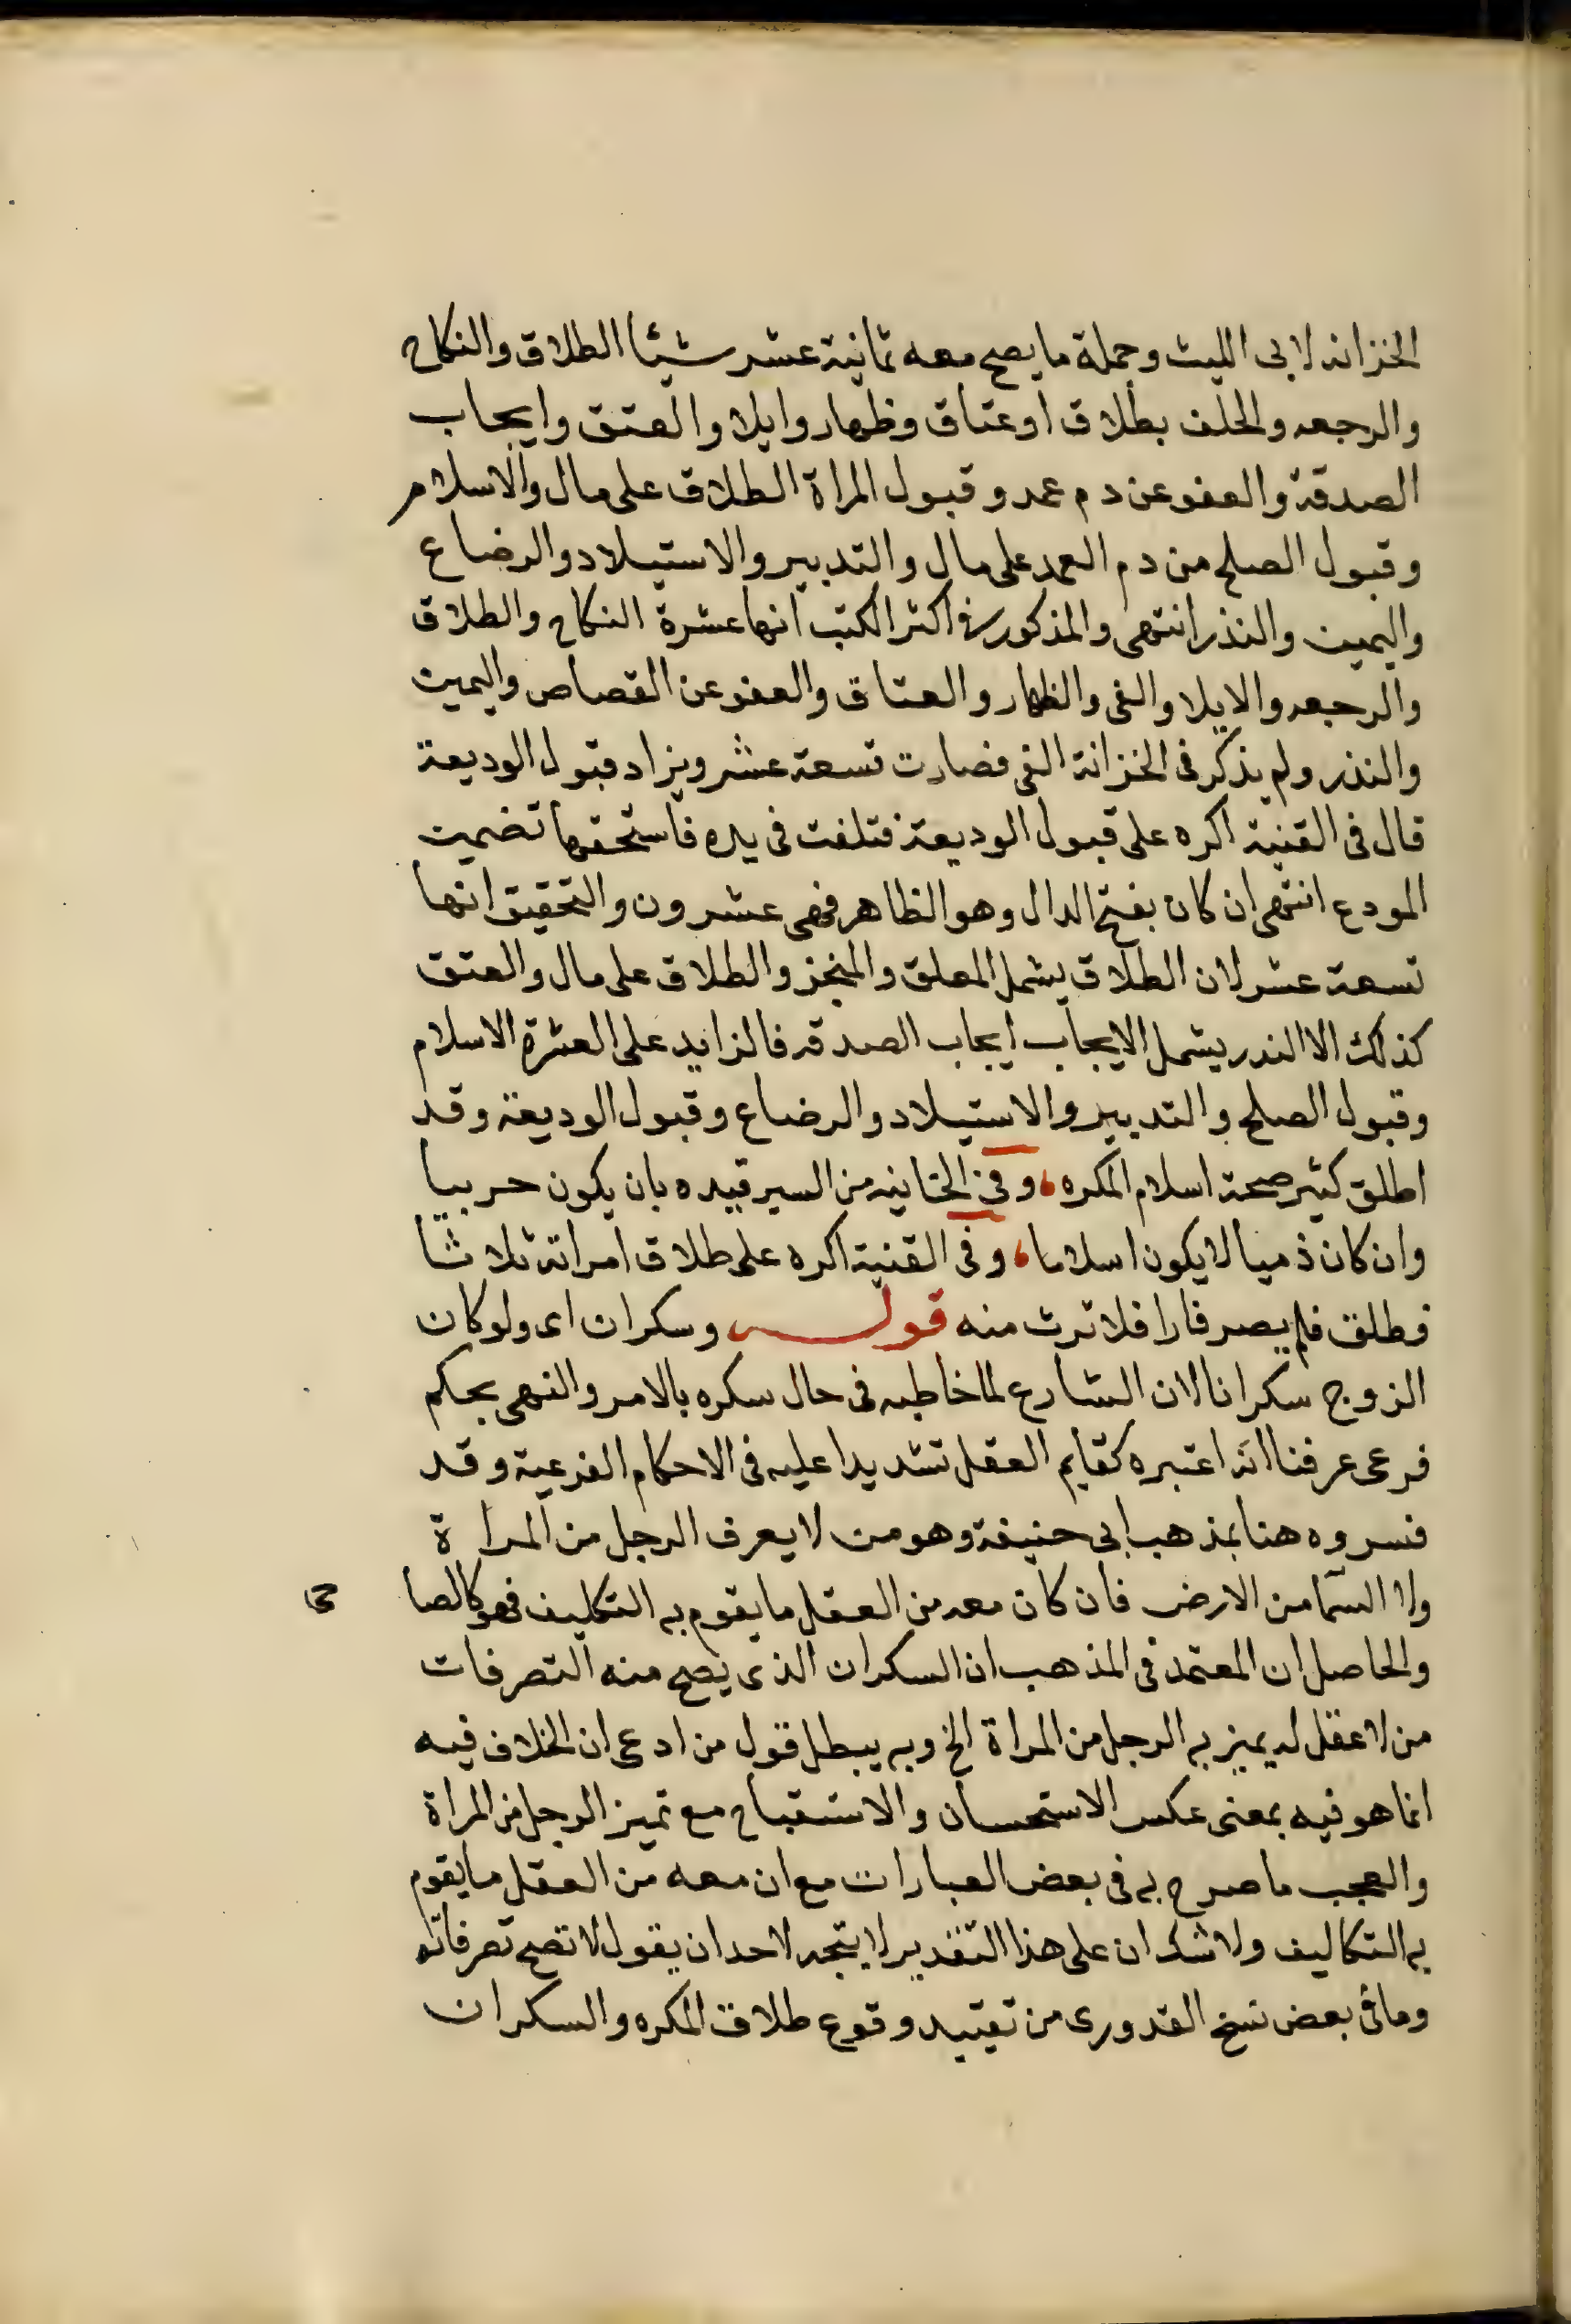 الخزانه لابى الليث وجملة ما يصح معه ثمانية عشر شيئا الطلاق والنكاح
والرجعه والحلف بطلاق او عتاق وظهار وايلا والعتق وايجاب
الصدقة والعفو عن دم عمد و قبول المراة الطلاق على مال والاسلام
وقبول الصلح من دم العمد على مال والتدبير والاستيلاد والرضاع
واليمين والنذر انتهى والمذكور فى اكثر الكتب انها عشرة النكاح والطلاق
والرجعه والايلا والفى والظهار والعتاق والعفو عن القصاص واليمين
والنذر ولم يذكر فى الخزانة الفى فصارت تسعة عشر ويزاد قبول الوديعة
قال فى القنية اكره على قبول الوديعة فتلفت فى يده فاستحقها تضمين
المودع انتهى ان كان بفتح الدال وهو الظاهر فهى عشرون والتحقيق انها
تسعة عشر لان الطلاق يشمل المعلق والمنجز والطلاق على مال والعتق
كذلك الا النذر يشمل الايجاب ايجاب الصدقه فالزايد على العشرة الاسلام
وقبول الصلح والتدبير والاستيلاد والرضاع وقبول الوديعة وقد
اطلق كثير صحة اسلام المكره، وفى الخانيه من السير قيده بان يكون حربيا
وان كان ذميا لا يكون اسلاما، وفى القنية اكره على طلاق امراته ثلاثا
فطلق فلم يصر فارا فلا ترث منه قوله وسكران اى ولو كان
الزوج سكرانا لان الشارع لما خاطبه فى حال سكره بالامر والنهى بحكم
فرعى عرفنا انه اعتبره كقايم العقل تشديدا عليه فى الاحكام الفرعية وقد
فسروه هنا بمذهب ابى حنيفة وهو من لا يعرف الرجل من المراة
ولا السما من الارض فان كان معه من العقل ما يقوم به التكليف فهو كالصاحى
والحاصل ان المعتمد فى المذهب ان السكران الذى يصح منه التصرفات
من لا عقل له يميز به الرجل من المراة الخ وبه يبطل قول من ادعى ان الخلاف فيه
انما هو فيه بمعنى عكس الاستحسان والاستقباح مع تميز الرجل من المراة
والعجب ما صرح به فى بعض العبارات مع ان معه من العقل ما يقوم
به التكاليف ولا شك ان على هذا التقدير لا يتجه لاحد ان يقول لا تصح تصرفاته
وما فى بعض نسخ القدورى من تقييد وقوع طلاق المكره والسكران